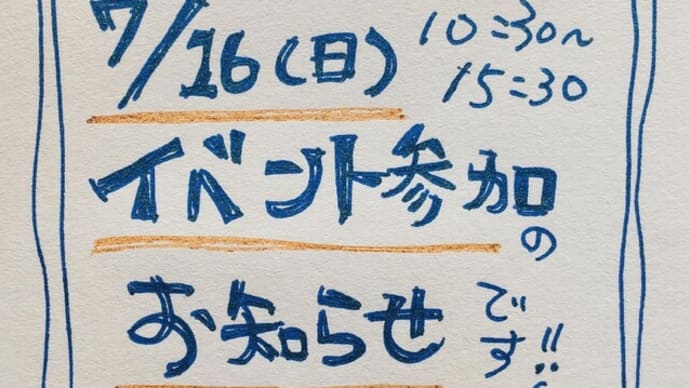 7/16(日) 10:30~
15:30
イベント参加の
お知らせです!!